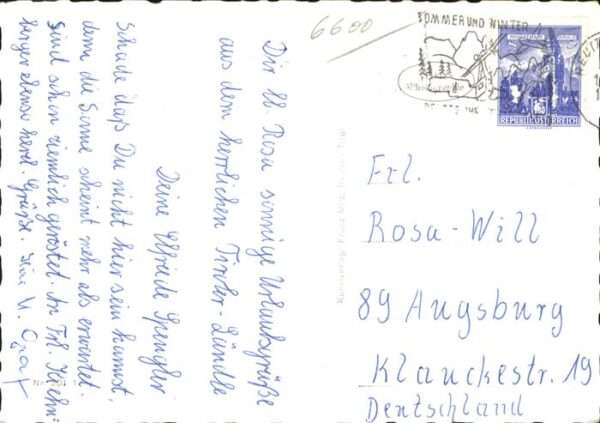 6600
SOMMER UND WINTER
REPUBLIK ÖSTERREICH
Dir lb. Rosa sonnige Urlaubsgrüße
aus dem herrlichen Tiroler-Ländle
Deine Elfriede Spengler
Schade daß Du nicht hier sein kannst,
denn die Sonne scheint mehr als erwartet.
Sind schon ziemlich geröstet. An Frl.
berger ebenso herzl. Grüße.
Frl.
Rosa-Will
89 Augsburg
Klauckestr. 19
Deutschland